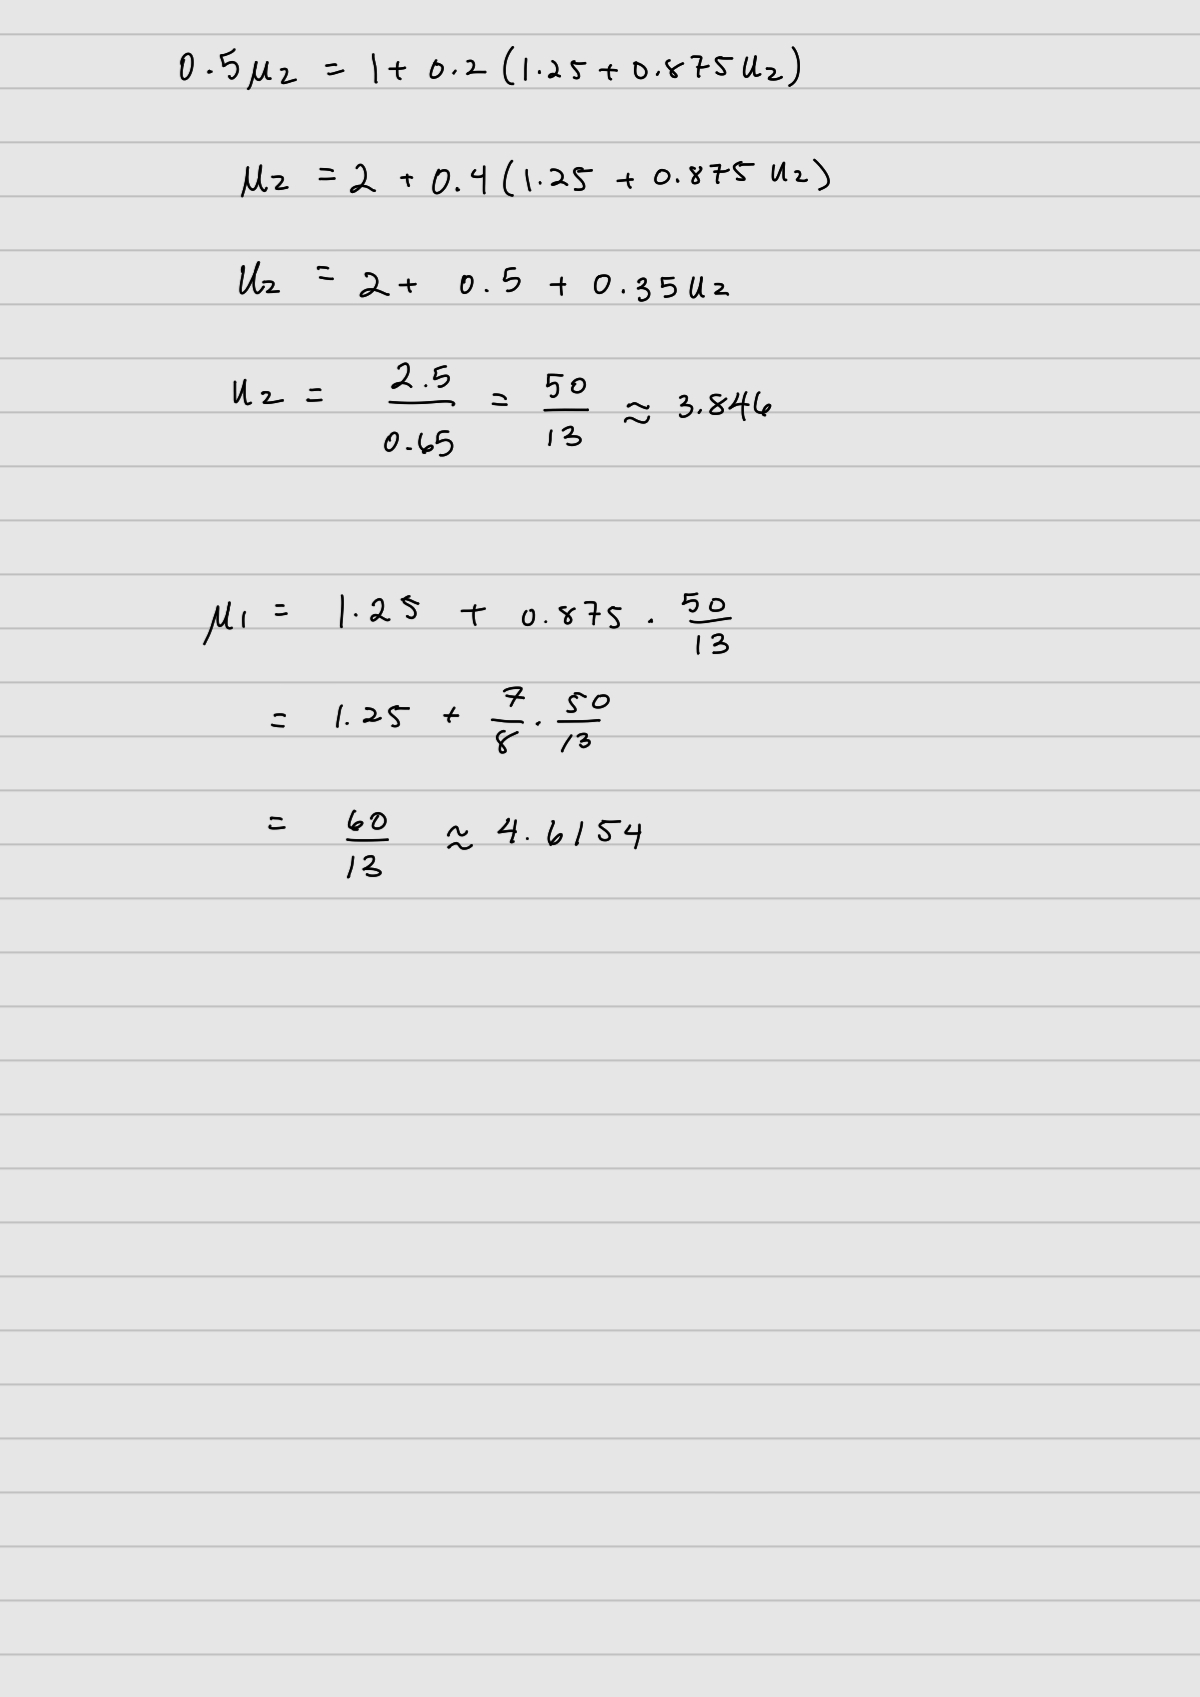 0.5μ₂ = 1 + 0.2 (1.25 + 0.875 μ₂)
μ₂ = 2 + 0.4 (1.25 + 0.875 μ₂)
μ₂ = 2 + 0.5 + 0.35 μ₂
μ₂ = 2.5/0.65 = 50/13 ≈ 3.846
μ₁ = 1.25 + 0.875 · 50/13
= 1.25 + 7/8 · 50/13
= 60/13 ≈ 4.6154